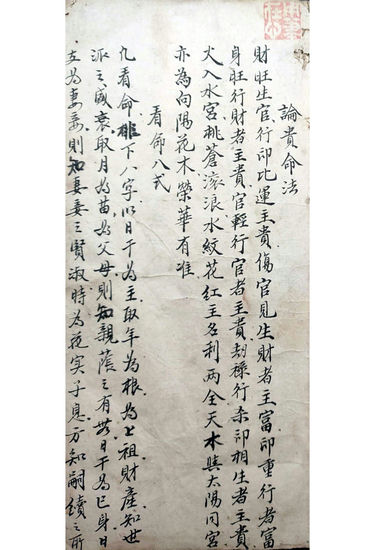 論貴命法
財旺生官行印比運主貴傷官見生財者主富印重行者富
身旺行財者主貴官輕行官者主貴刦祿行杀印相生者主貴
火入水宮桃蒼滚浪水紋花紅主名利两全天水與太陽同宮
亦為向陽花木榮華有准
看命八式
凢看命排下八字以日干為主取年為根為上祖財產知世
派之盛衰取月為苗為父母則知親蔭之有無日干為己身日
支為妻妾則知妻妾之賢淑時為花实子息方知嗣續之所